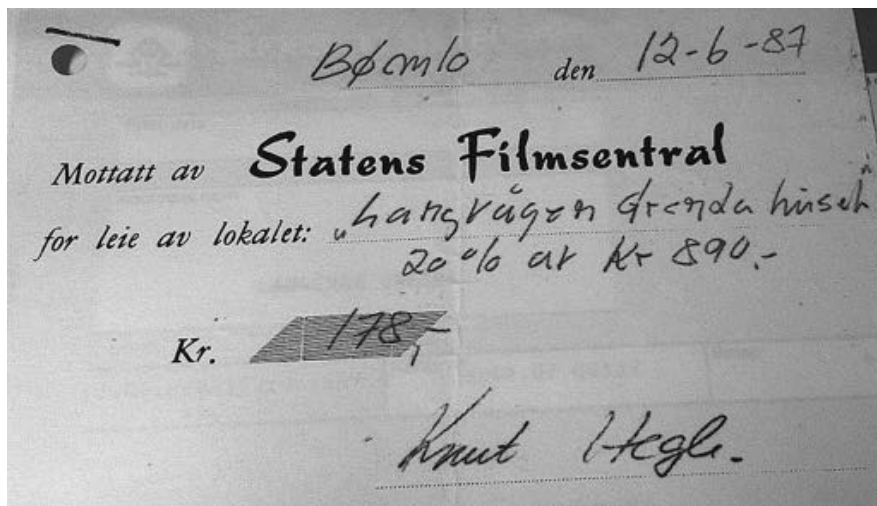 Bømlo den 12-6-87
Mottatt av Statens Filmsentral
for leie av lokalet: "Langvågen Grendahuset
20% av Kr 890.-
Kr. 178,-
Knut Hegle.